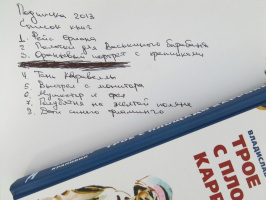 Родинка 2013
Список книг
1. Рейс
2. Полотой для Барабанов
3. Оранжевый портрет с крапинками
4. Тень Каравеллы
5. Выстрел с монитора
6. Мушкетёр и фея
7. Голубятня на желтой поляне
8. Дети синего фламинго
ВЛАДИСЛАВ
ТРОЕ
С ПЛО
КАРР